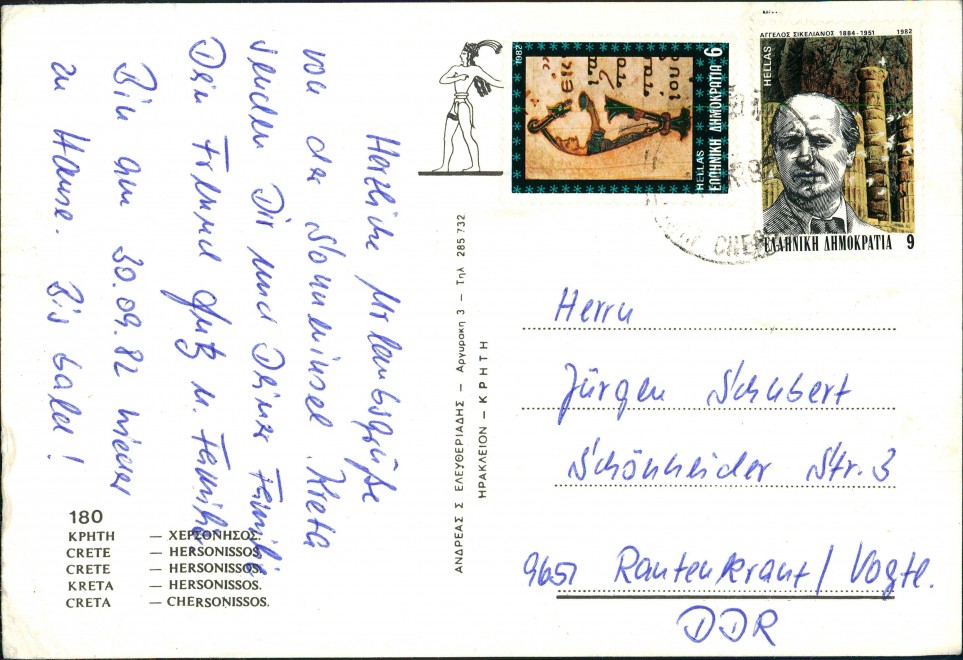 Herzliche Urlaubsgrüße
von der Sonneninsel Kreta
senden Dir und Deiner Familie
Dein Freund u. Familie
Bin am 30.09.82 wieder
zu Hause. Bis bald!
180
ΚΡΗΤΗ — ΧΕΡΣΟΝΗΣΟΣ.
CRETE — HERSONISSOS.
CRETE — HERSONISSOS.
KRETA — HERSONISSOS.
CRETA — CHERSONISSOS.
ΑΝΔΡΕΑΣ Σ ΕΛΕΥΘΕΡΙΑΔΗΣ — Αργυρακη 3 — Τηλ 285 732
ΗΡΑΚΛΕΙΟΝ - ΚΡΗΤΗ
1982
HELLAS
ΕΛΛΗΝΙΚΗ ΔΗΜΟΚΡΑΤΙΑ 6
ΑΓΓΕΛΟΣ ΣΙΚΕΛΙΑΝΟΣ 1884-1951 1982
HELLAS
ΕΛΛΗΝΙΚΗ ΔΗΜΟΚΡΑΤΙΑ 9
Herrn
Jürgen Schubert
Schönheider Str. 3
9651 Rautenkranz/Vogtl.
DDR